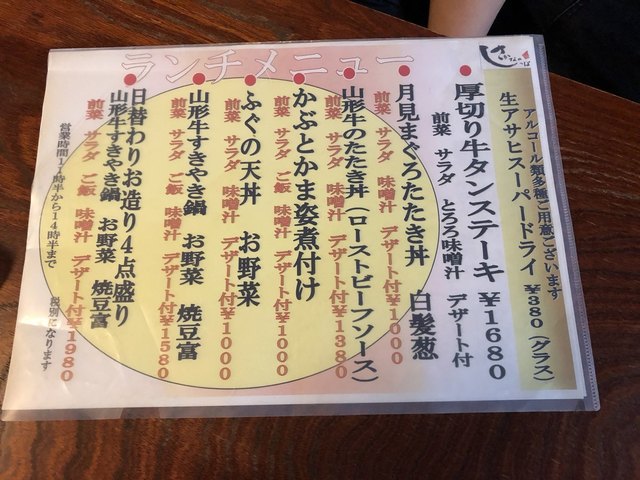 ランチメニュー
アルコール類多種ご用意ございます
生アサヒスーパードライ ¥380(グラス)
厚切り牛タンステーキ ¥1680
前菜 サラダ とろろ味噌汁 デザート付
月見まぐろたたき丼 白髪葱
前菜 サラダ 味噌汁 デザート付¥1000
山形牛のたたき丼(ローストビーフソース)
前菜 サラダ 味噌汁 デザート付¥1380
かぶとかま姿煮付け
前菜 サラダ ご飯 味噌汁 デザート付¥1000
ふぐの天丼 お野菜
前菜 サラダ 味噌汁 デザート付¥1000
山形牛すきやき鍋 お野菜 焼豆富
前菜 サラダ ご飯 味噌汁 デザート付¥1580
日替わりお造り4点盛り
山形牛すきやき鍋 お野菜 焼豆富
前菜 サラダ ご飯 味噌汁 デザート付¥1980
営業時間11時半から14時半まで 税別になります